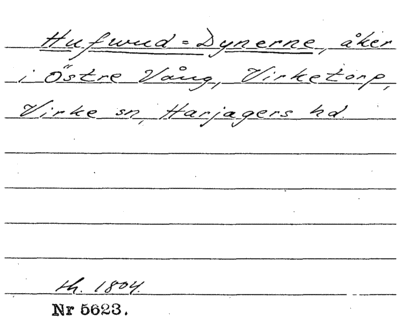 Hufwud=Dynerne, åker
i Östre Vång, Virketorp,
Virke sn, Harjagers hd
th. 1804.
Nr 5623.